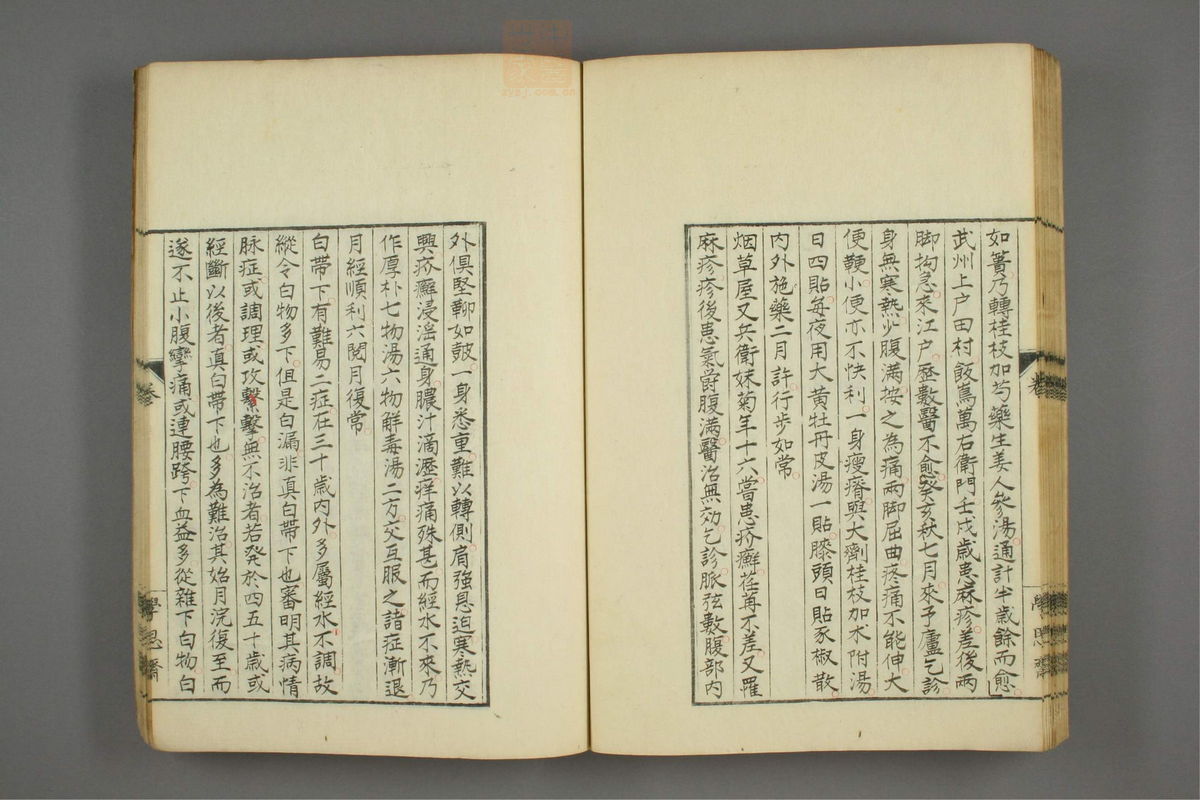 如簣乃轉桂枝加芍藥生姜人參湯通計半歲餘而愈
武州上户田村飯嶌萬右衛門壬戌歲患麻疹差後兩
脚拘急來江户歷數醫不愈癸亥秋七月來予廬乞診
身無寒熱少腹滿按之為痛兩脚屈曲疼痛不能伸大
便鞕小便亦不快利一身瘦瘠與大劑桂枝加朮附湯
日四貼每夜用大黃牡丹皮湯一貼膝頭日貼豕椒散
內外施藥二月許行步如常
烟草屋又兵衛妹菊年十六嘗患疥癬荏苒不差又罹
麻疹疹後患氣欝腹满醫治無効乞診脈弦數腹部內
外倶堅鞕如鼓一身悉重難以轉側肩強息迫寒熱交
興疥癬浸淫通身膿汁滴瀝痒痛殊甚而經水不來乃
作厚朴七物湯六物解毒湯二方交互服之諸症漸退
月經順利六閱月復常
白帶下有難易二症在三十歲內外多屬經水不調故
縱令白物多下但是白漏非真白帶下也審明其病情
脉症或調理或攻繫擊無不治者若癸於四五十歲或
經斷以後者真白帶下也多為難治其始月浣復至而
遂不止小腹攣痛或連腰跨下血益多從雜下白物白
卷
學思齋